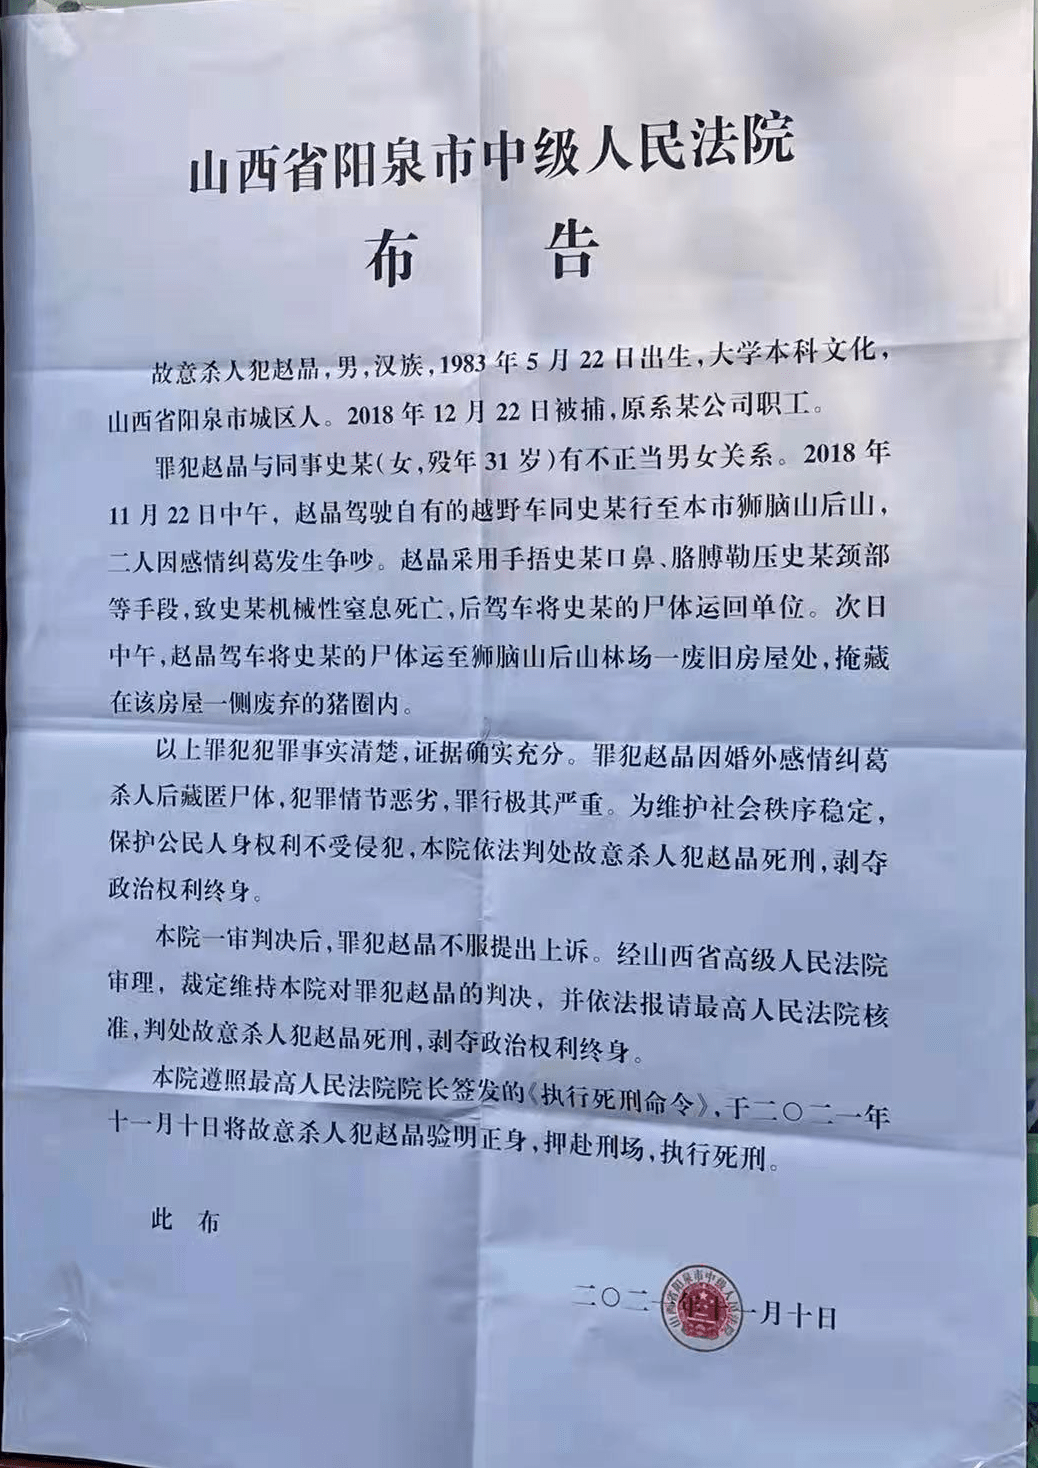 山西省阳泉市中级人民法院
布 告
故意杀人犯赵晶，男，汉族，1983年5月22日出生，大学本科文化，
山西省阳泉市城区人。2018年12月22日被捕，原系某公司职工。
罪犯赵晶与同事史某（女，殁年31岁）有不正当男女关系。2018年
11月22日中午，赵晶驾驶自有的越野车同史某行至本市狮脑山后山，
二人因感情纠葛发生争吵。赵晶采用手捂史某口鼻、胳膊勒压史某颈部
等手段，致史某机械性窒息死亡，后驾车将史某的尸体运回单位。次日
中午，赵晶驾车将史某的尸体运至狮脑山后山林场一废旧房屋处，掩藏
在该房屋一侧废弃的猪圈内。
以上罪犯犯罪事实清楚，证据确实充分。罪犯赵晶因婚外感情纠葛
杀人后藏匿尸体，犯罪情节恶劣，罪行极其严重。为维护社会秩序稳定，
保护公民人身权利不受侵犯，本院依法判处故意杀人犯赵晶死刑，剥夺
政治权利终身。
本院一审判决后，罪犯赵晶不服提出上诉。经山西省高级人民法院
审理，裁定维持本院对罪犯赵晶的判决，并依法报请最高人民法院核
准，判处故意杀人犯赵晶死刑，剥夺政治权利终身。
本院遵照最高人民法院院长签发的《执行死刑命令》，于二〇二一年
十一月十日将故意杀人犯赵晶验明正身，押赴刑场，执行死刑。
此 布
二〇二一年十一月十日
山西省阳泉市中级人民法院